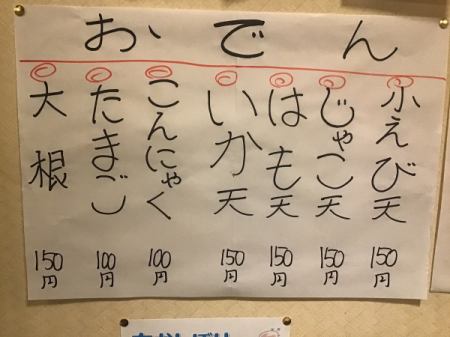 おでん
小えび天 150円
じゃこ天 150円
はも天 150円
いか天 150円
こんにゃく 100円
たまご 100円
大根 150円